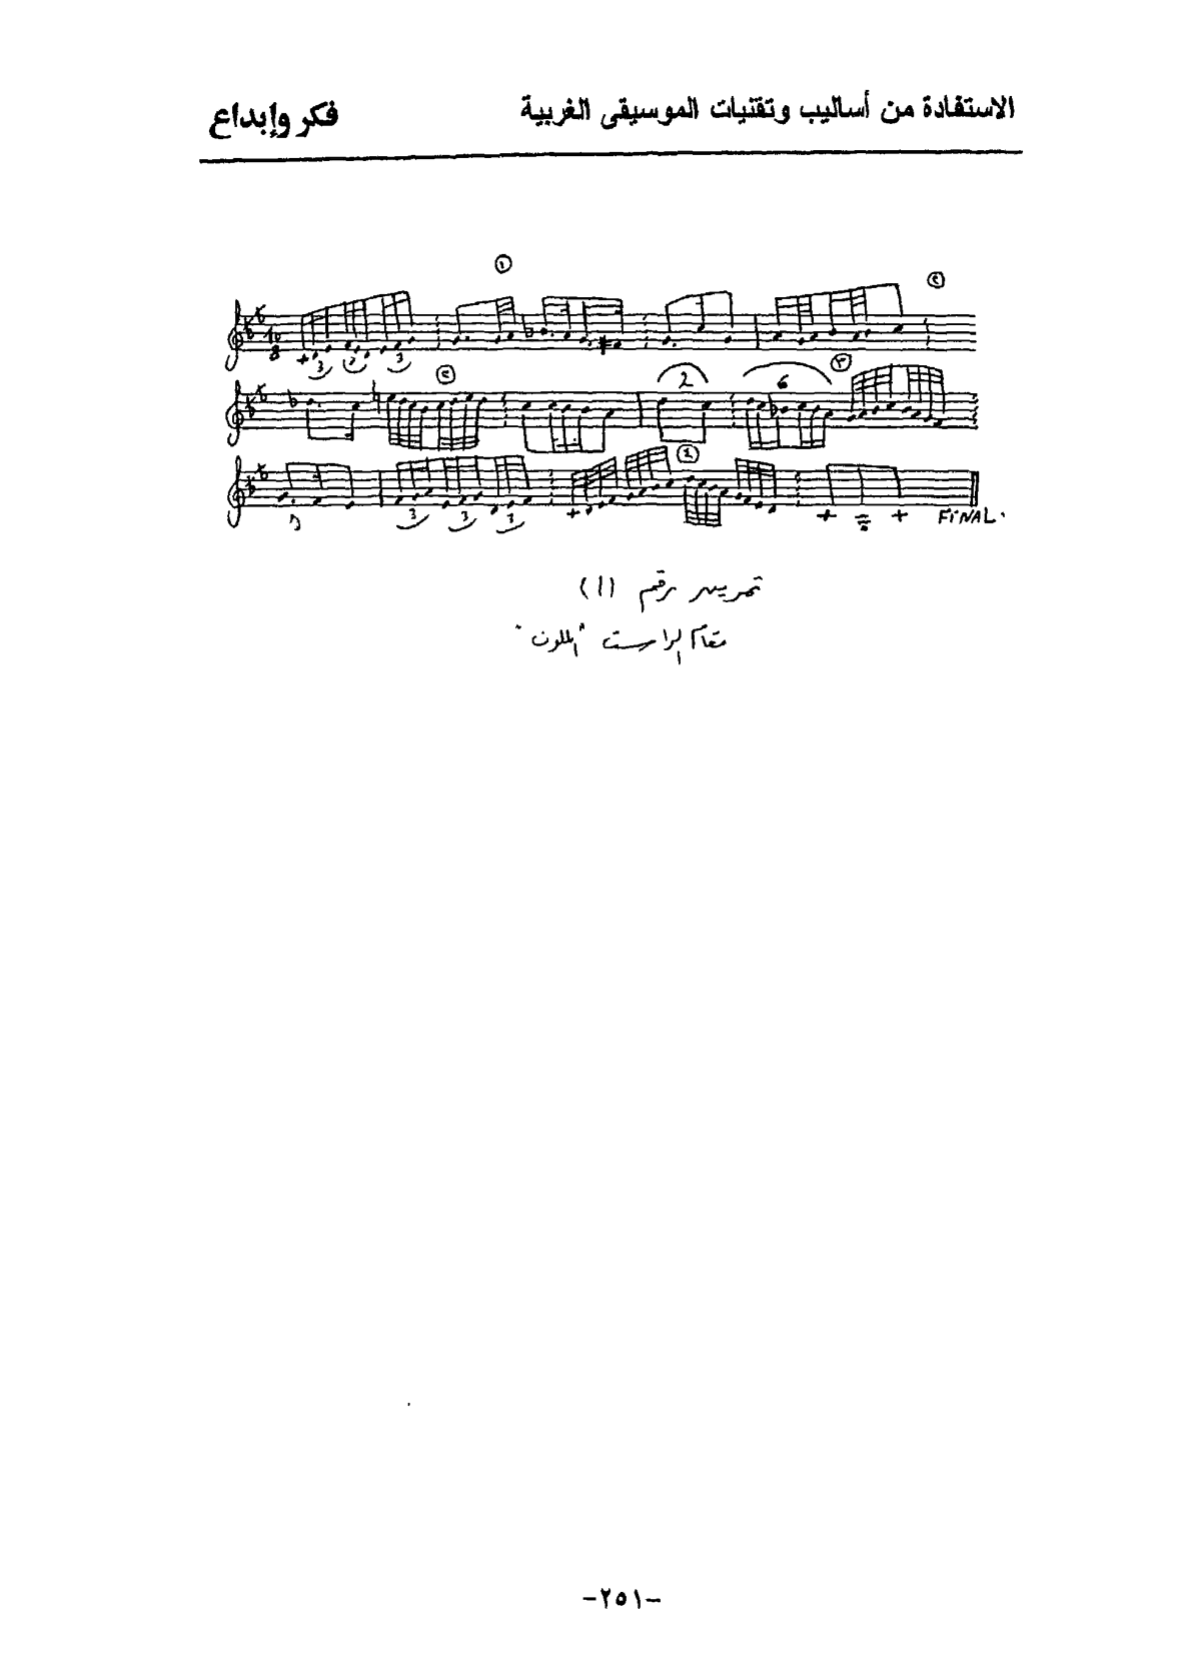 الاستفادة من أساليب وتقنيات الموسيقى الغربية فكر وإبداع
١
٢
10
8
3 3 3
٣
2 6
٤
3 3 3
FINAL.
تمرين رقم (١)
مقام الراست "الملون"
-٢٥١-